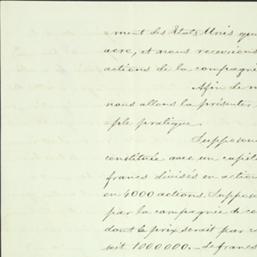 ment des Etats Unis que
acre, et nous recevrons
actions de la compagnie
Afin de m
nous allons la présenter
ple pratique.
Supposons
constituée avec un capit
francs divisés en action
en 4000 actions. Suppos
par la compagnie de ce
dont le prix serait par ce
soit 1000000.— de francs